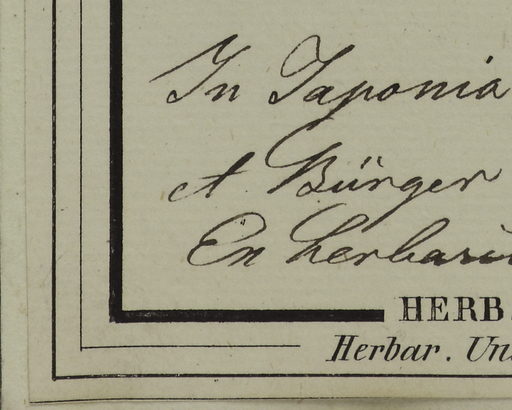 In Japonia
et Bürger
Ex herbari
HERB
Herbar. Un